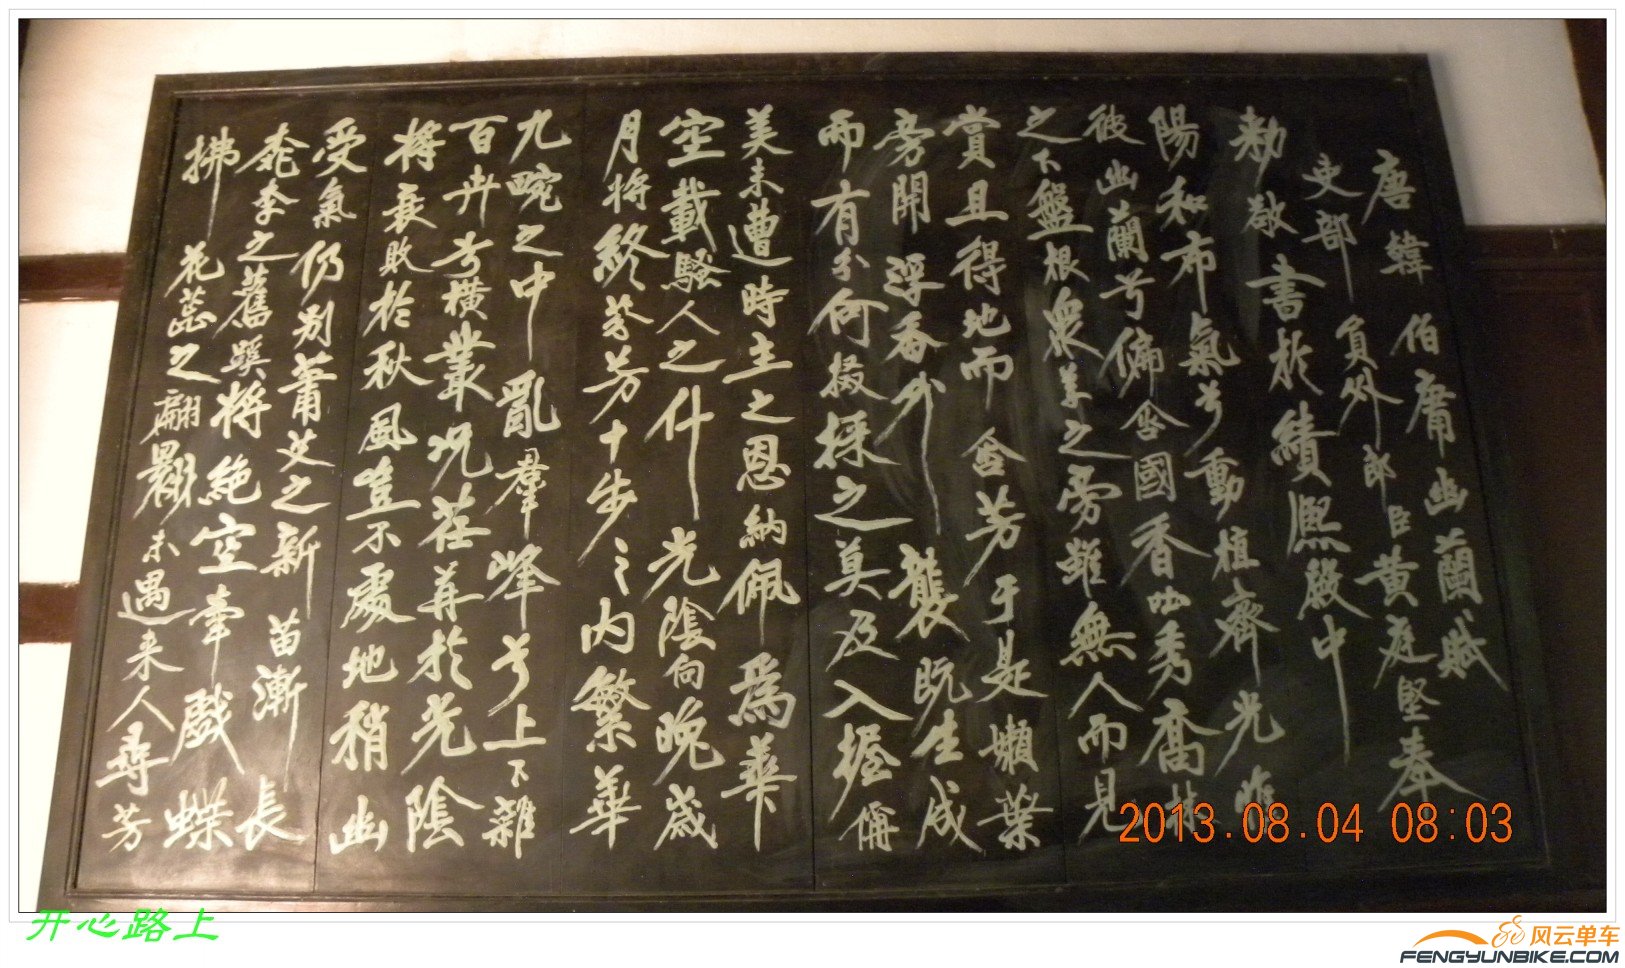 唐韓伯庸幽蘭賦
吏部負外郎臣黄庭堅奉
勅敬書於績熙殿中
陽和布氣兮動植齊光惟
彼幽蘭兮偏含國香吐秀喬林
之下盤根衆草之旁雖無人而見
賞且得地而含芳于是嫩葉
旁開浮香外襲既生成
而有分何掇採之莫及入握侢
美未遭時主之恩納佩爲華
空載騷人之什光陰向晚歲
月將終芬芳十步之内繁華
九畹之中亂羣峰兮上下雜
百卉兮横叢況荏苒於光陰
將衰敗於秋風豈不處地稍幽
受氣仍别蕭艾之新苗漸長
桃李之舊蹊將絶空牽戲蝶
拂花蕊之翩翾未遇來人尋芳
2013.08.04 08:03
开心路上
风云单车
FENGYUNBIKE.COM